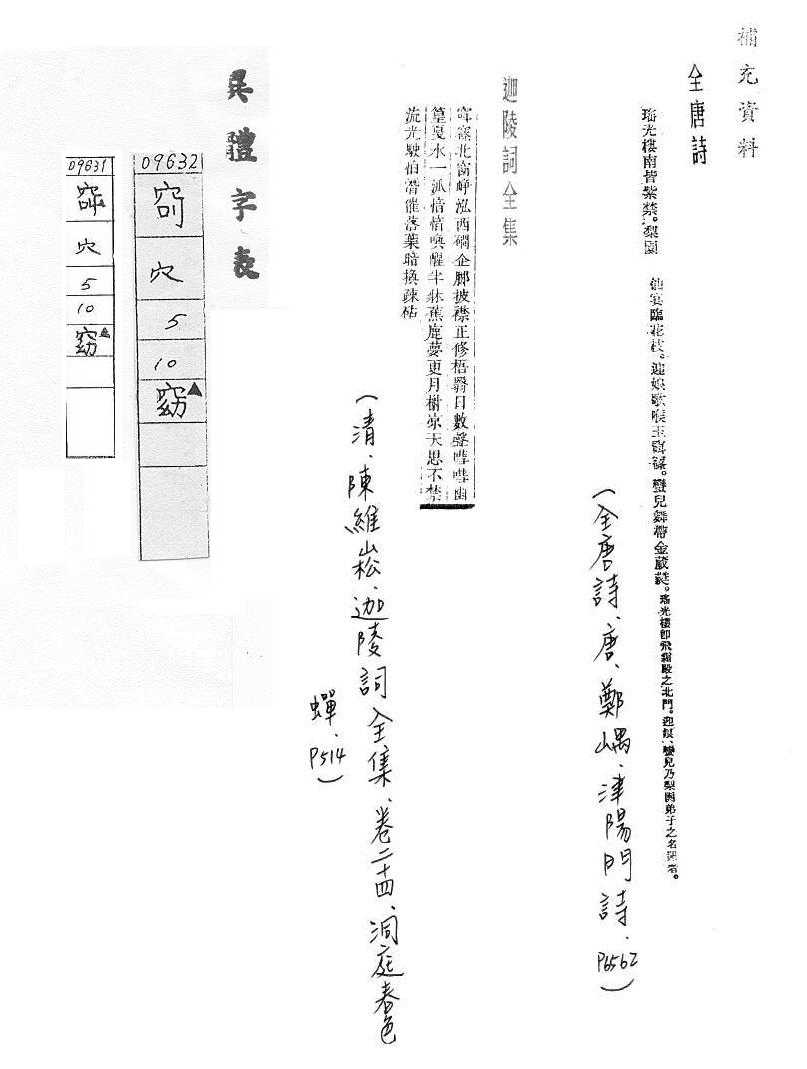 補充資料
全唐詩
瑤光樓南皆紫禁。梨園仙宴臨花枝。迎娘歌喉玉窈窕。蠻兒舞帶金葳蕤。瑤光樓即飛霜殿之北門。迎娘、蠻兒乃梨園弟子之名聞者。
(全唐詩、唐、鄭嵎、津陽門詩、P6562)
迦陵詞全集
北窗崢泓西磵企腳披襟正修梧翳日數聲嘒嘒幽
篁戛水一派愔愔喚醒半牀蕉鹿夢更月榭涼天思不禁
流光駛怕潛催落葉暗換疎砧
(清、陳維崧、迦陵詞全集、卷二十四、洞庭春色
蟬、P514)
異體字表
09632
穴
5
10
窈
09631
穴
5
10
窈